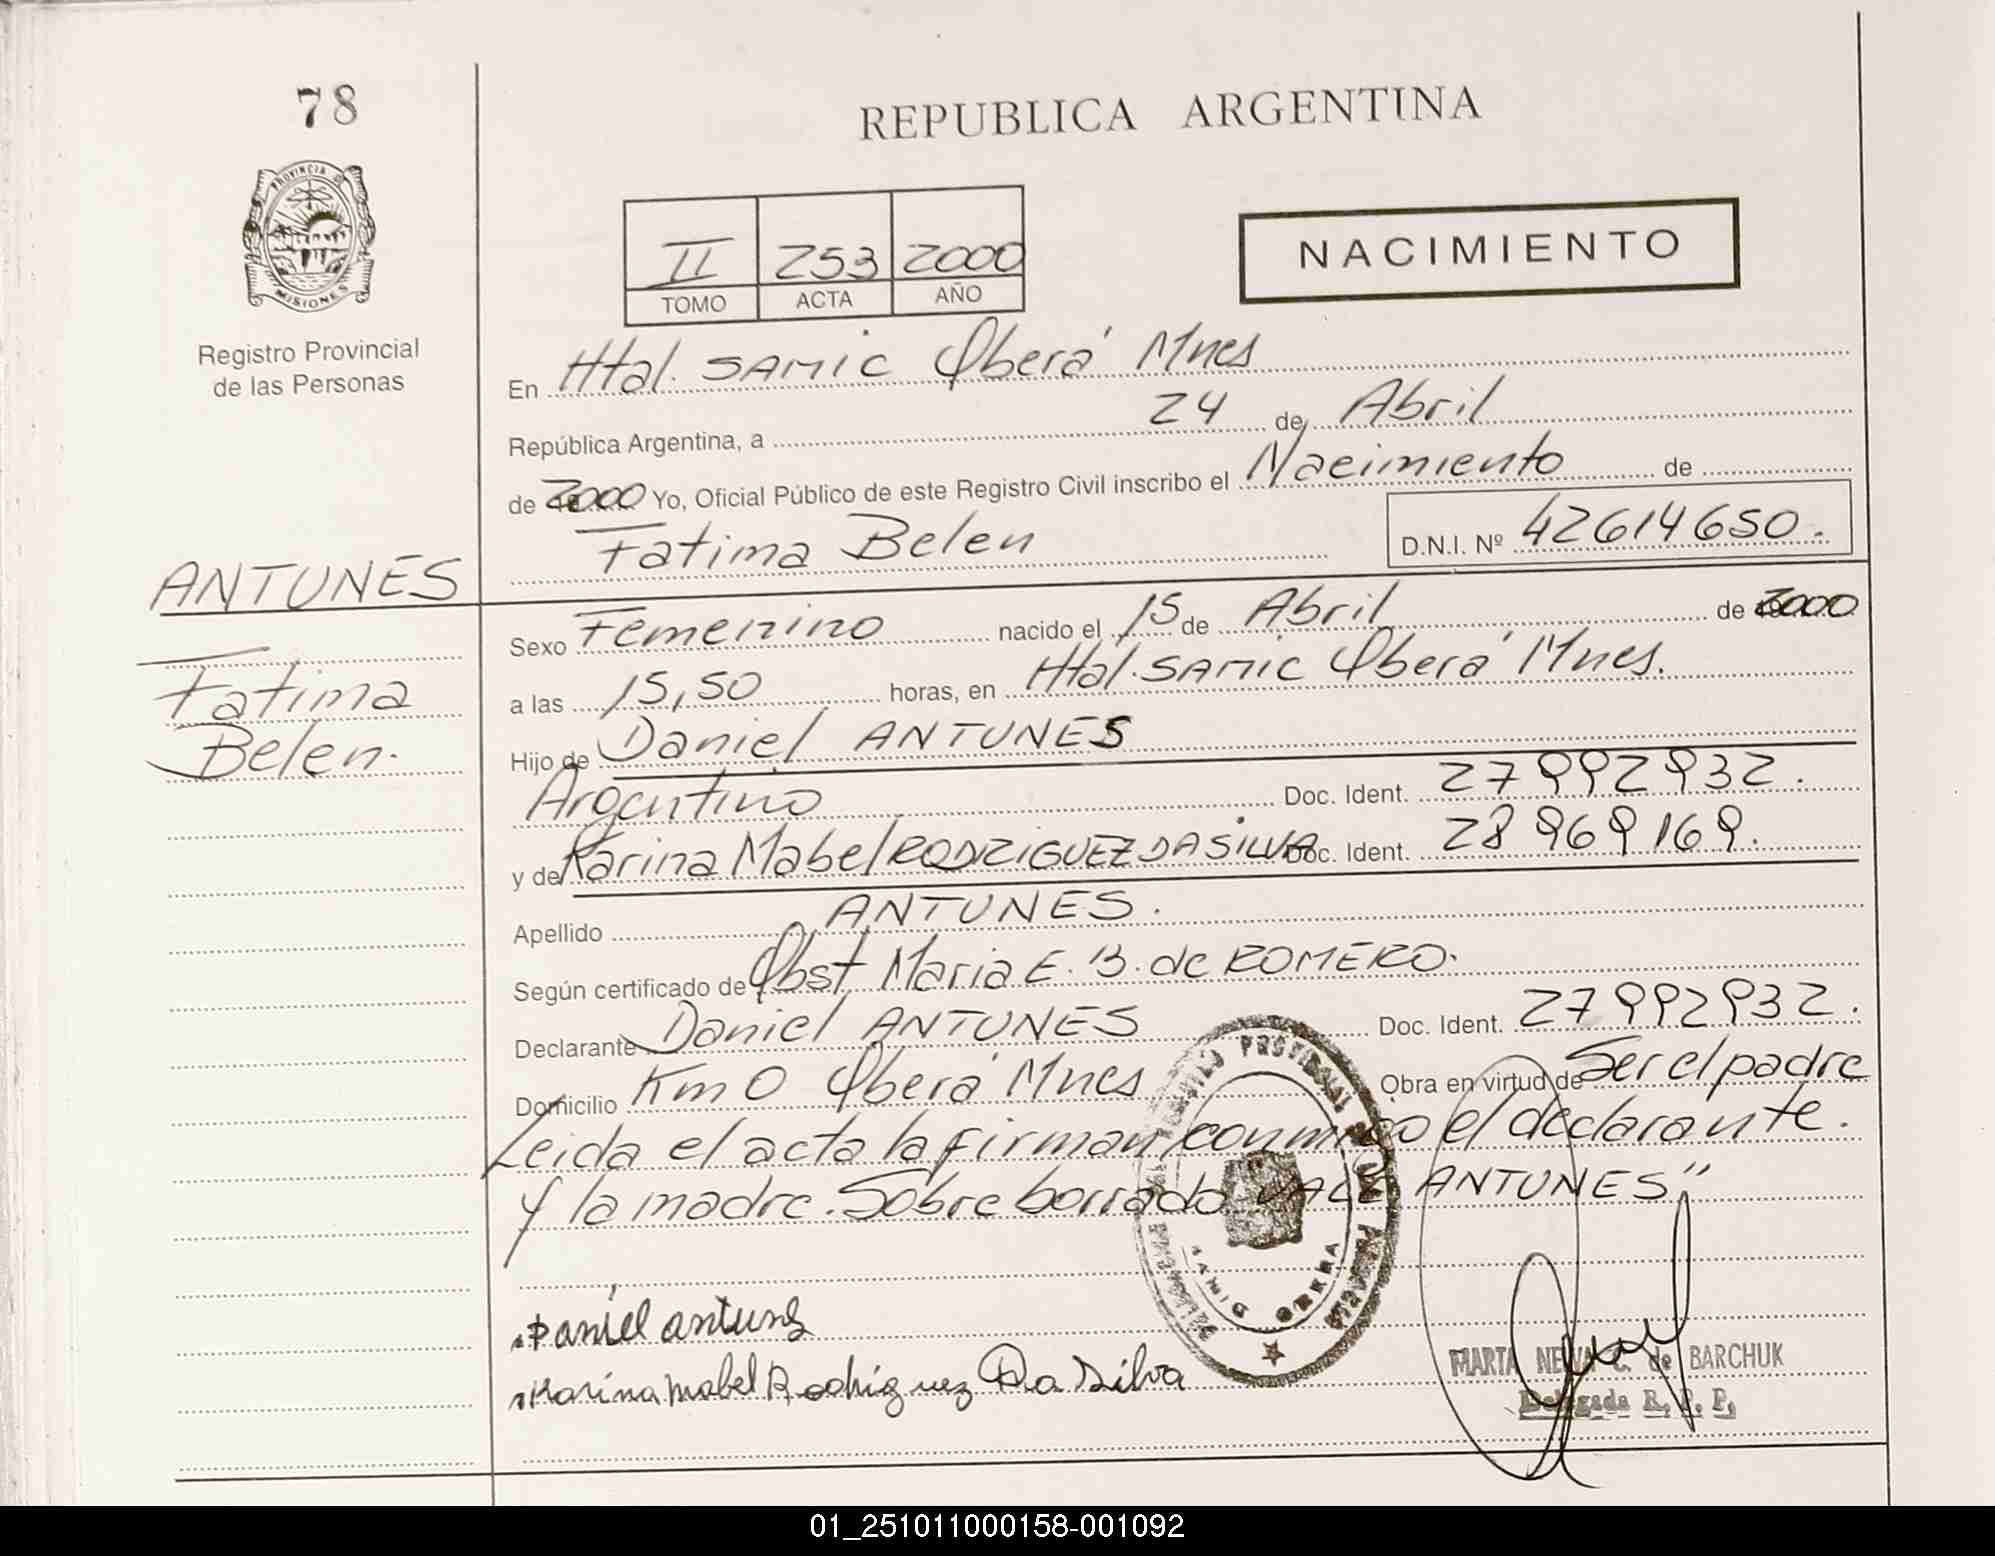 78
REPUBLICA ARGENTINA
PROVINCIA DE
MISIONES
II 253 2000
TOMO ACTA AÑO
NACIMIENTO
Registro Provincial
de las Personas
En Htal. SAMIC Oberá Mnes
República Argentina, a 24 de Abril
de 2000 Yo, Oficial Público de este Registro Civil inscribo el Nacimiento de
Fatima Belen D.N.I. Nº 42614650.
ANTUNES
Fatima
Belen.
Sexo Femenino nacido el 15 de Abril de 2000
a las 15,50 horas, en Htal. SAMIC Oberá Mnes.
Hijo de Daniel ANTUNES
Argentino Doc. Ident. 27992932.
y de Karina Mabel RODRIGUEZ DA SILVA Doc. Ident. 28969169.
Apellido ANTUNES.
Según certificado de Obst Maria E. B. de ROMERO.
Declarante Daniel ANTUNES Doc. Ident. 27992932.
Domicilio Km 0 Oberá Mnes Obra en virtud de Ser el padre
Leida el acta la firman conmigo el declarante.
y la madre. Sobre borrado VALE ANTUNES"
REGISTRO PROVINCIAL DE LAS PERSONAS
SAMIC OBERA
Daniel antunes
Karina mabel Rodriguez Da Silva
MARTA C. de BARCHUK
Delegada R. P. P.
01_251011000158-001092